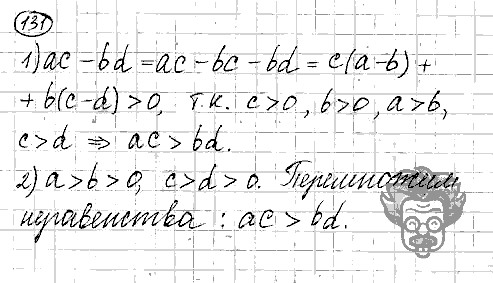 131
1) ac – bd = ac – bc – bd = c(a – b) +
+ b(c – d) > 0, т.к. c > 0, b > 0, a > b,
c > d ⇒ ac > bd.
2) a > b > 0, c > d > 0. Перемножим
неравенства: ac > bd.